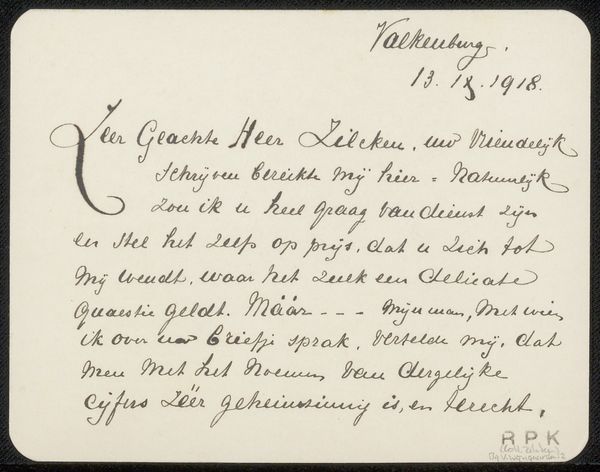 Valkenburg.
13.IX.1918.
Zeer Geachte Heer Zilcken, uw vriendelijk
schrijven bereikte mij hier = Natuurlijk
zou ik u heel graag van dienst zijn
en stel het zelfs op prijs, dat u zich tot
mij wendt, waar het zulk een delicate
quaestie geldt. Máár - - - mijn man, met wien
ik over uw briefje sprak, vertelde mij, dat
men met het noemen van dergelijke
cijfers zéér geheimzinnig is, en terecht,
RPK